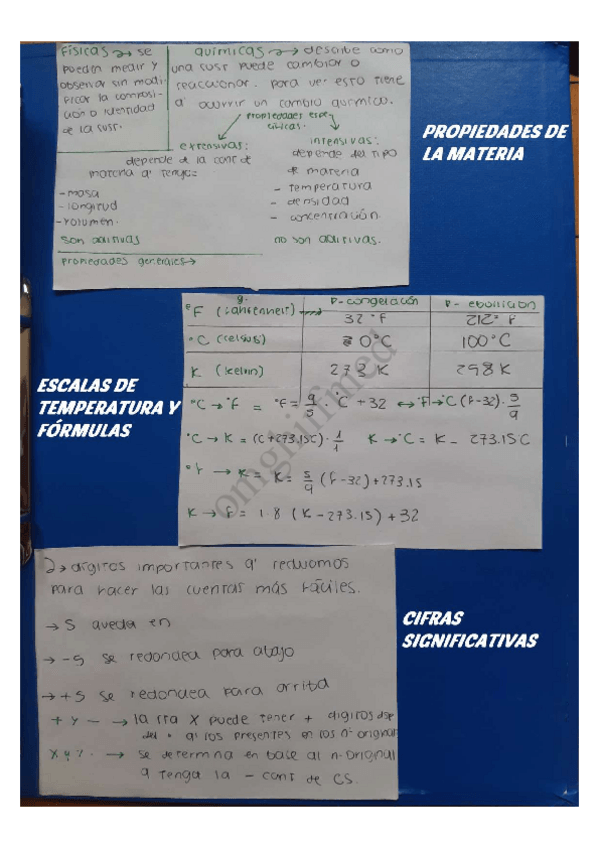 Físicas → se
pueden medir y
observar sin modi-
ficar la composi-
ción o identidad
de la susr.
químicas → describe como
una susr puede cambiar o
reaccionar. para ver esto tiene
q' ocurrir un cambio químico.
propiedades espe-
cíficas.
extensivas:
depende de la cant de
materia q' tenga:
-masa
-longitud
-volumen.
son aditivas
intensivas:
depende del tipo
de materia
- temperatura
- densidad
- concentración
no son aditivas.
propiedades generales→
PROPIEDADES DE
LA MATERIA
g.
P-congelación
P- ebullición
°F (Fahrenheit) →
32 °F
212° F
°C (celsius)
0°C
100°C
K (kelvin)
273 K
298 K
°C → °F = °F = 9/5 · °C + 32 ↔ °F→°C (F-32) · 5/9
°C → K = (C+273.15C) · 1/1 K → °C = K - 273.15C
°F → K = K = 5/9 (F-32) +273.15
K → F = 1.8 (K - 273.15) + 32
omghiifmed
ESCALAS DE
TEMPERATURA Y
FÓRMULAS
→ dígitos importantes q' reducimos
para hacer las cuentas más fáciles.
→ 5 queda en
→ -5 se redondea para abajo
→ +5 se redondea para arriba
+ y - → la rta X puede tener + dígitos dsp
del • q' los presentes en los n° original
X y % → se determina en base al n-original
q tenga la - cant de CS.
CIFRAS
SIGNIFICATIVAS